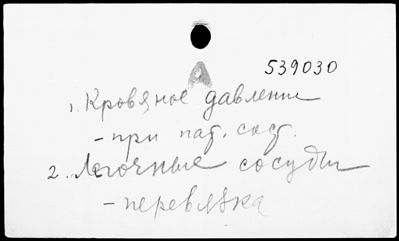 А 539030
1. Кровяное давление
- при пат. сост.
2. Легочные сосуды
- перевязка